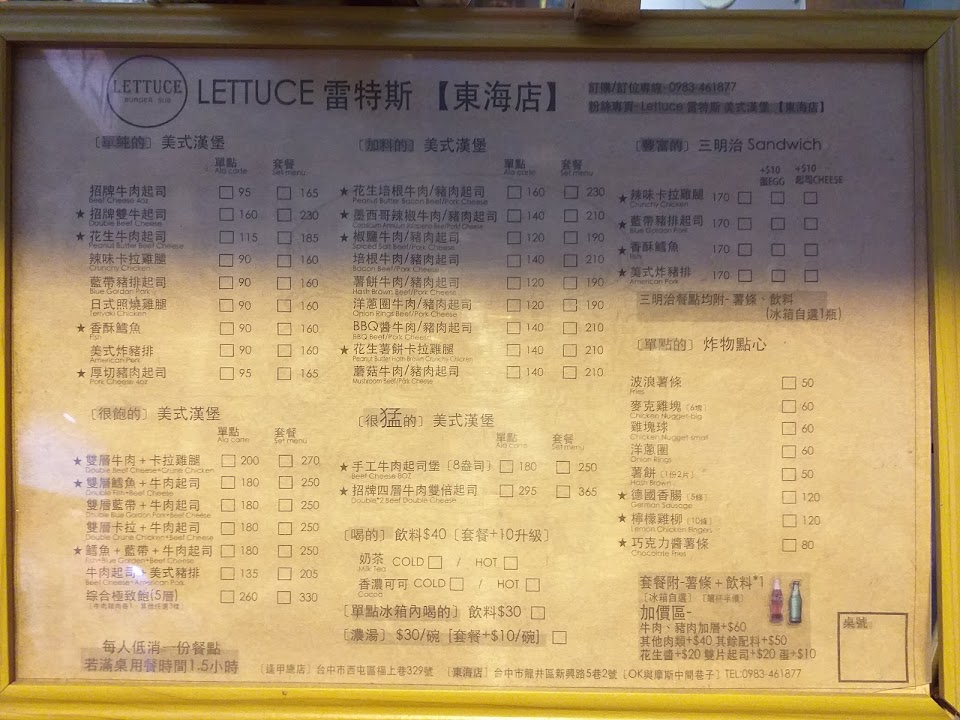 LETTUCE
BURGER SUB
LETTUCE 雷特斯 【東海店】
訂購/訂位專線- 0983-461877
粉絲專頁- Lettuce 雷特斯 美式漢堡 【東海店】
〔單純的〕 美式漢堡
單點 套餐
Ala carte Set menu
招牌牛肉起司 95 165
Beef Cheese 4oz
★ 招牌雙牛起司 160 230
Double Beef Cheese
★ 花生牛肉起司 115 185
Peanut Butter Beef Cheese
辣味卡拉雞腿 90 160
Crunchy Chicken
藍帶豬排起司 90 160
Blue Gordan Pork
日式照燒雞腿 90 160
Teriyaki Chicken
★ 香酥鱈魚 90 160
Fish
美式炸豬排 90 160
American Pork
★ 厚切豬肉起司 95 165
Pork Cheese 4oz
〔加料的〕 美式漢堡
單點 套餐
Ala carte Set menu
★ 花生培根牛肉/豬肉起司 160 230
Peanut Butter Bacon Beef/Pork Cheese
★ 墨西哥辣椒牛肉/豬肉起司 140 210
Capsicum Annuum Jalapeno Beef/Pork Cheese
★ 椒鹽牛肉/豬肉起司 120 190
Spiced Salt Beef/Pork Cheese
培根牛肉/豬肉起司 140 210
Bacon Beef/Pork Cheese
薯餅牛肉/豬肉起司 120 190
Hash Brown Beef/Pork Cheese
洋蔥圈牛肉/豬肉起司 120 190
Onion Rings Beef/Pork Cheese
BBQ醬牛肉/豬肉起司 140 210
BBQ Beef/Pork Cheese
★ 花生薯餅卡拉雞腿 140 210
Peanut Butter Hash Brown Crunchy Chicken
蘑菇牛肉/豬肉起司 140 210
Mushroom Beef/Pork Cheese
〔豐富的〕 三明治 Sandwich
+$10 +$10
蛋EGG 起司CHEESE
★ 辣味卡拉雞腿 170
Crunchy Chicken
★ 藍帶豬排起司 170
Blue Gordan Pork
★ 香酥鱈魚 170
Fish
★ 美式炸豬排 170
American Pork
三明治餐點均附- 薯條、飲料
(冰箱自選1瓶)
〔單點的〕 炸物點心
波浪薯條 50
Fries
麥克雞塊〔6塊〕 60
Chicken Nugget-big
雞塊球 60
Chicken Nugget-small
洋蔥圈 60
Onion Rings
薯餅〔1份2片〕 50
Hash Brown
★ 德國香腸〔5條〕 120
German Sausage
★ 檸檬雞柳〔10條〕 120
Lemon Chicken Fingers
★ 巧克力醬薯條 80
Chocolate Fries
〔很飽的〕 美式漢堡
單點 套餐
Ala carte Set menu
★ 雙層牛肉+卡拉雞腿 200 270
Double Beef Cheese+Crune Chicken
★ 雙層鱈魚+牛肉起司 180 250
Double Fish+Beef Cheese
雙層藍帶+牛肉起司 180 250
Double Blue Gordan Pork+Beef Cheese
雙層卡拉+牛肉起司 180 250
Double Crune Chicken+Beef Cheese
★ 鱈魚+藍帶+牛肉起司 180 250
Fish+Blue Gordan+Beef Cheese
牛肉起司+美式豬排 135 205
Beef Cheese+American Pork
綜合極致飽(5層) 260 330
〔很猛的〕 美式漢堡
單點 套餐
Ala carte Set menu
★ 手工牛肉起司堡〔8盎司〕 180 250
Beef Cheese 8OZ
★ 招牌四層牛肉雙倍起司 295 365
Double*2 Beef Double Cheese
〔喝的〕 飲料$40〔套餐+10升級〕
奶茶 COLD / HOT
Milk Tea
香濃可可 COLD / HOT
Cocoa
〔單點冰箱內喝的〕 飲料$30
〔濃湯〕 $30/碗 〔套餐+$10/碗〕
套餐附-薯條+飲料*1
〔冰箱自選〕
加價區-
牛肉、豬肉加層+$60
其他肉類+$40 其餘配料+$50
花生醬+$20 雙片起司+$20 蛋+$10
桌號:
每人低消一份餐點
若滿桌用餐時間1.5小時
〔逢甲總店〕台中市西屯區福上巷329號 〔東海店〕台中市龍井區新興路5巷2號〔OK與摩斯中間巷子〕TEL:0983-461877